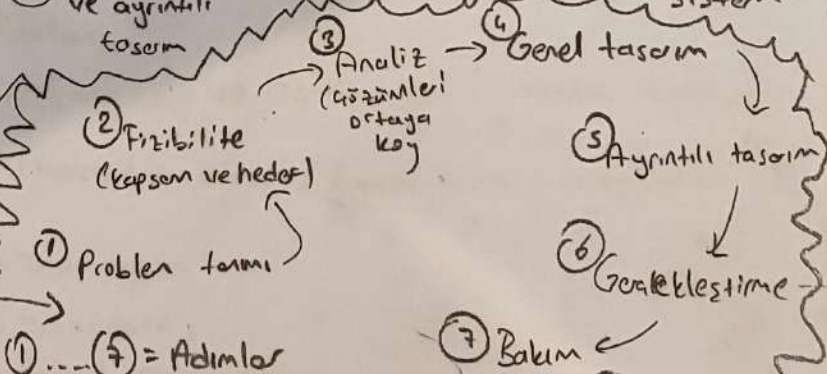 ve ayrıntılı
tasarım
sistem
③ Analiz
(çözümleri
ortaya
koy
④ Genel tasarım
② Fizibilite
(kapsam ve hedef)
⑤ Ayrıntılı tasarım
① Problem tanımı
⑥ Gerçekleştirme
① ....(7) = Adımlar
⑦ Bakım